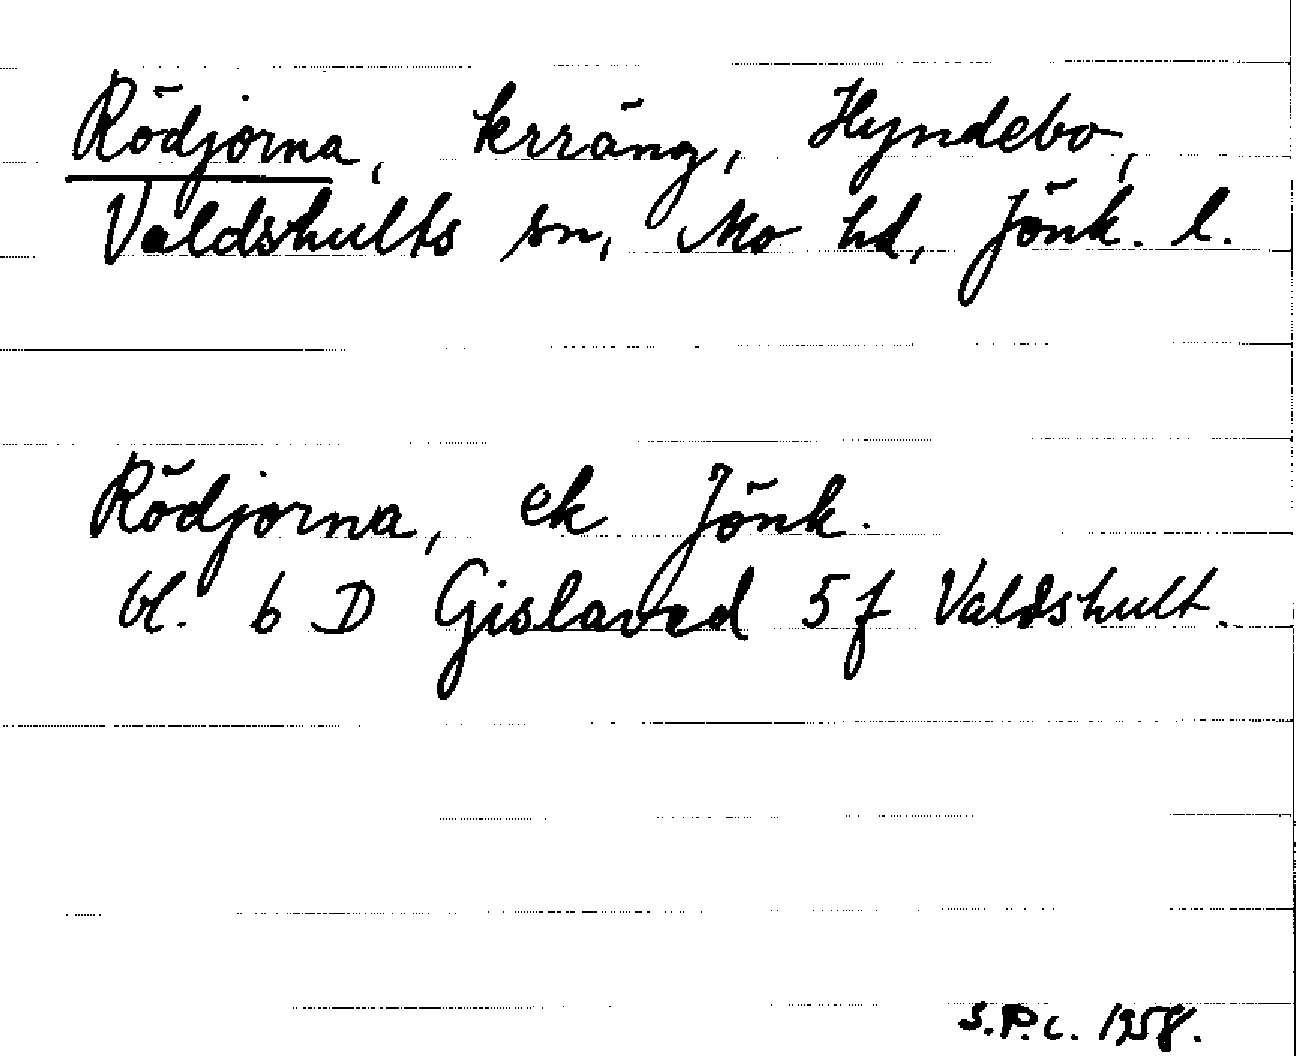 Rödjorna, kärräng, Hyndebo,
Valdshults sn, Mo hd, Jönk. l.
Rödjorna, ek Jönk.
bl. 6 D Gislaved 5 f Valdshult.
S.P.c. 1958.